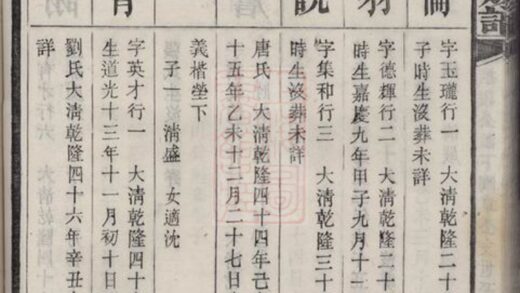 字玉瓏行一 大清乾隆二十
子時生沒葬未詳
字德輝行二 大清乾隆二十
時生嘉慶九年甲子九月十一
字集和行三 大清乾隆三十
時生沒葬未詳
唐氏 大清乾隆四十四年己
十五年乙未十二月二十七日
義楷塋下
子一 清盛 女適沈
字英才行一 大清乾隆四十
生道光十三年十一月初十日
劉氏大清乾隆四十六年辛丑
詳